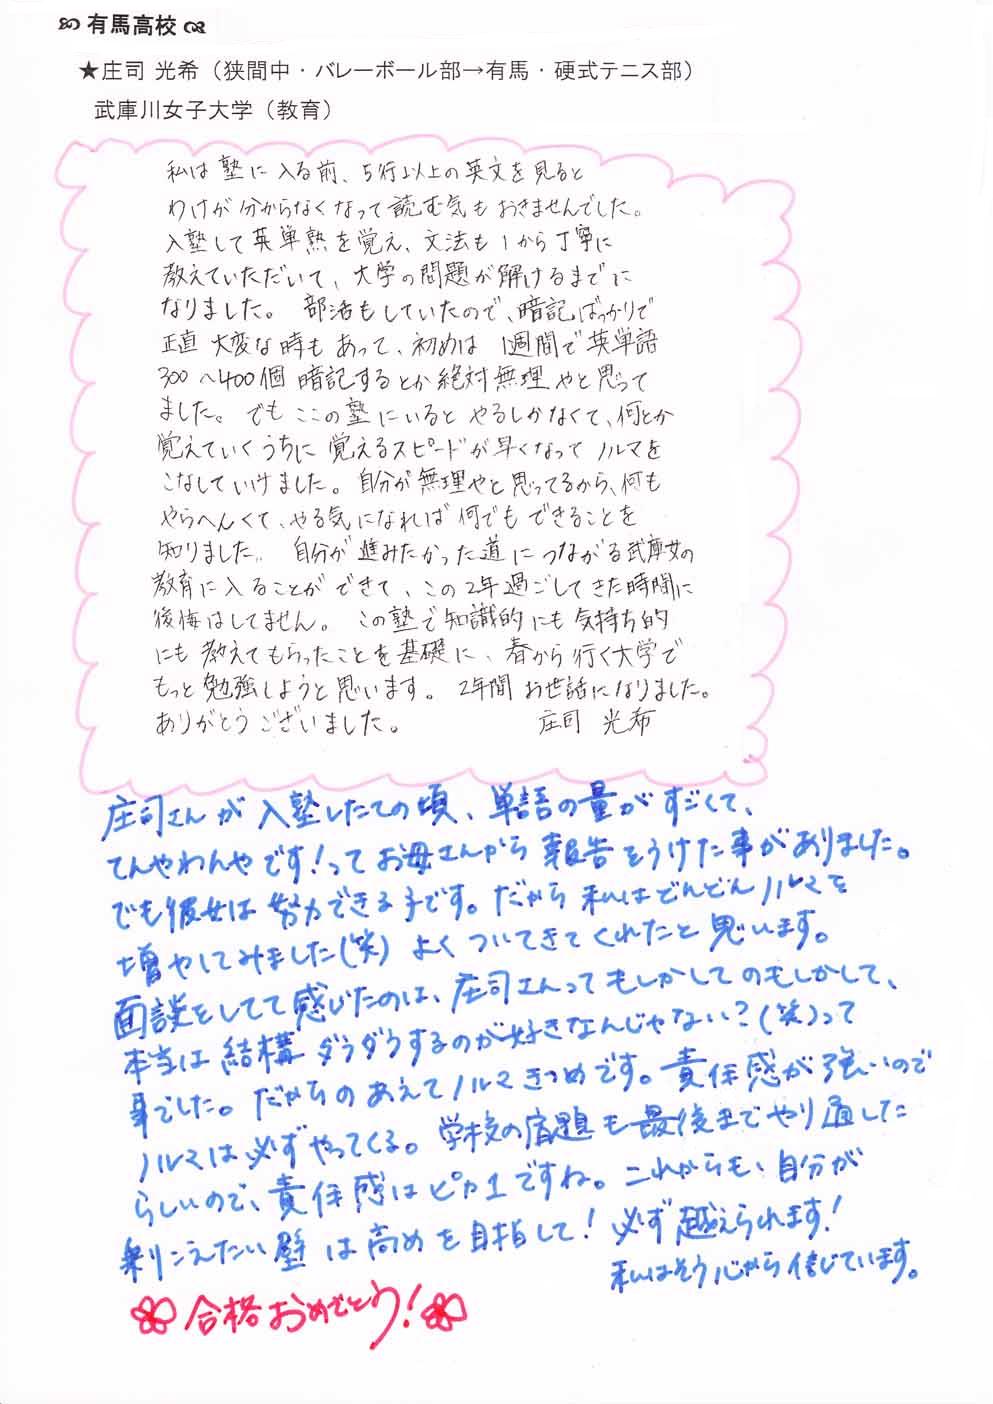 有馬高校
★庄司 光希（狭間中・バレーボール部→有馬・硬式テニス部）
武庫川女子大学（教育）
私は塾に入る前、5行以上の英文を見ると
わけが分からなくなって読む気もおきませんでした。
入塾して英単熟を覚え、文法も1から丁寧に
教えていただいて、大学の問題が解けるまでに
なりました。 部活もしていたので、暗記ばっかりで
正直 大変な時もあって、初めは 1週間で英単語
300〜400個 暗記するとか絶対無理やと思って
ました。でもここの塾にいるとやるしかなくて、何とか
覚えていくうちに覚えるスピードが早くなってノルマを
こなしていけました。自分が無理やと思ってるから、何も
やらへんくて、やる気になれば何でもできることを
知りました。 自分が進みたかった道につながる武庫女の
教育に入ることができて、この2年過ごしてきた時間に
後悔はしてません。 この塾で知識的にも気持ち的
にも教えてもらったことを基礎に、春から行く大学で
もっと勉強しようと思います。 2年間お世話になりました。
ありがとうございました。 庄司 光希
庄司さんが入塾したての頃、単語の量がすごくて、
てんやわんやです!ってお母さんから報告をうけた事がありました。
でも彼女は努力できる子です。だから私はどんどんノルマを
増やしてみました(笑)よくついてきてくれたと思います。
面談をしてて感じたのは、庄司さんってもしかしてのもしかして、
本当は結構ダラダラするのが好きなんじゃない?(笑)って
事でした。だからのあえてノルマきつめです。責任感が強いので
ノルマは必ずやってくる。学校の宿題も最後までやり通した
らしいので、責任感はピカ1ですね。これからも、自分が
乗りこえたい壁は高めを目指して!必ず越えられます!
私はそう心から信じています。
合格おめでとう!